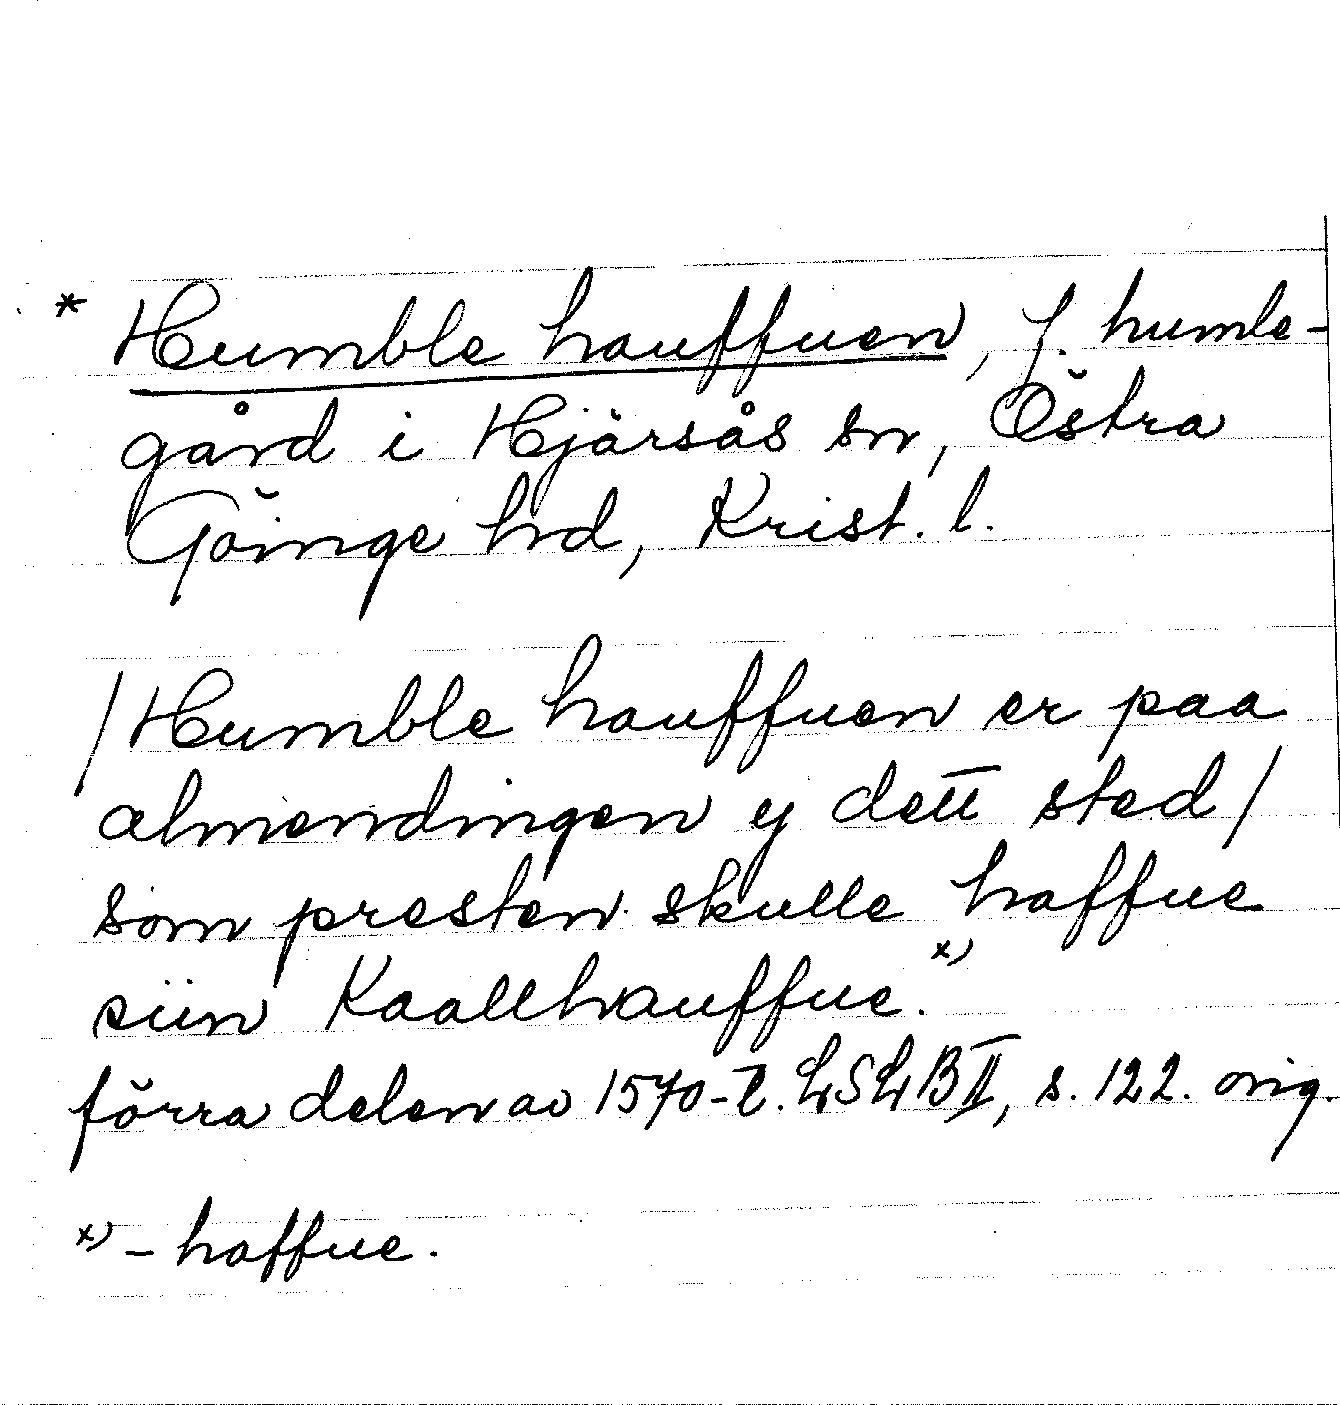 * Humble hauffuen, f. humle-
gård i Hjärsås sn, Östra
Göinge hd, Krist. l.
/Humble hauffuen er paa
almendingen ej dett sted/
som presten skulle haffue
siin Kaallhauffue.x)
förra delen av 1570-t. LSLB II, s. 122. orig.
x) – haffue.